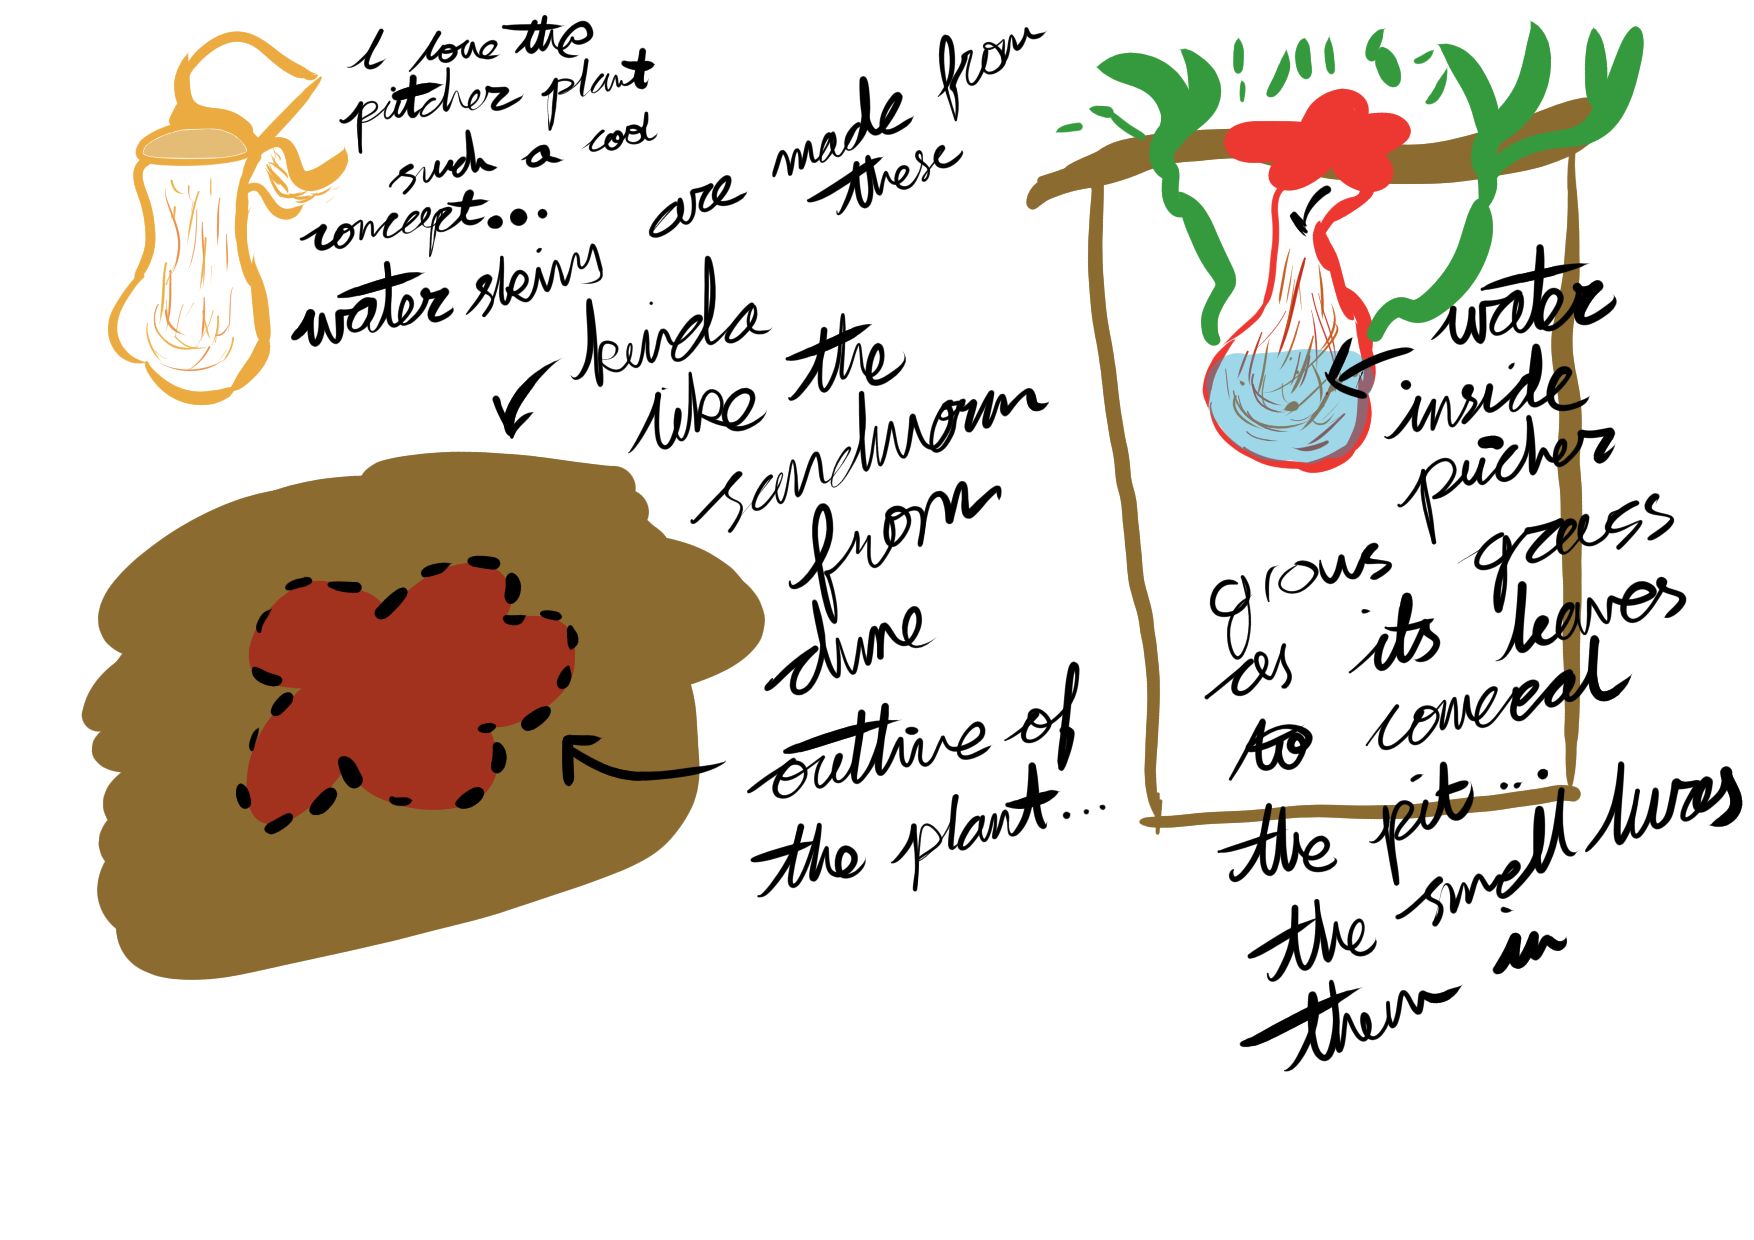 I love the
pitcher plant
such a cool
concept...
water skins are made from
these
kinda
like the
sandworm
from
dune
outline of
the plant...
water
inside
pitcher
grows grass
as its leaves
to conceal
the pit...
the smell lures
them in